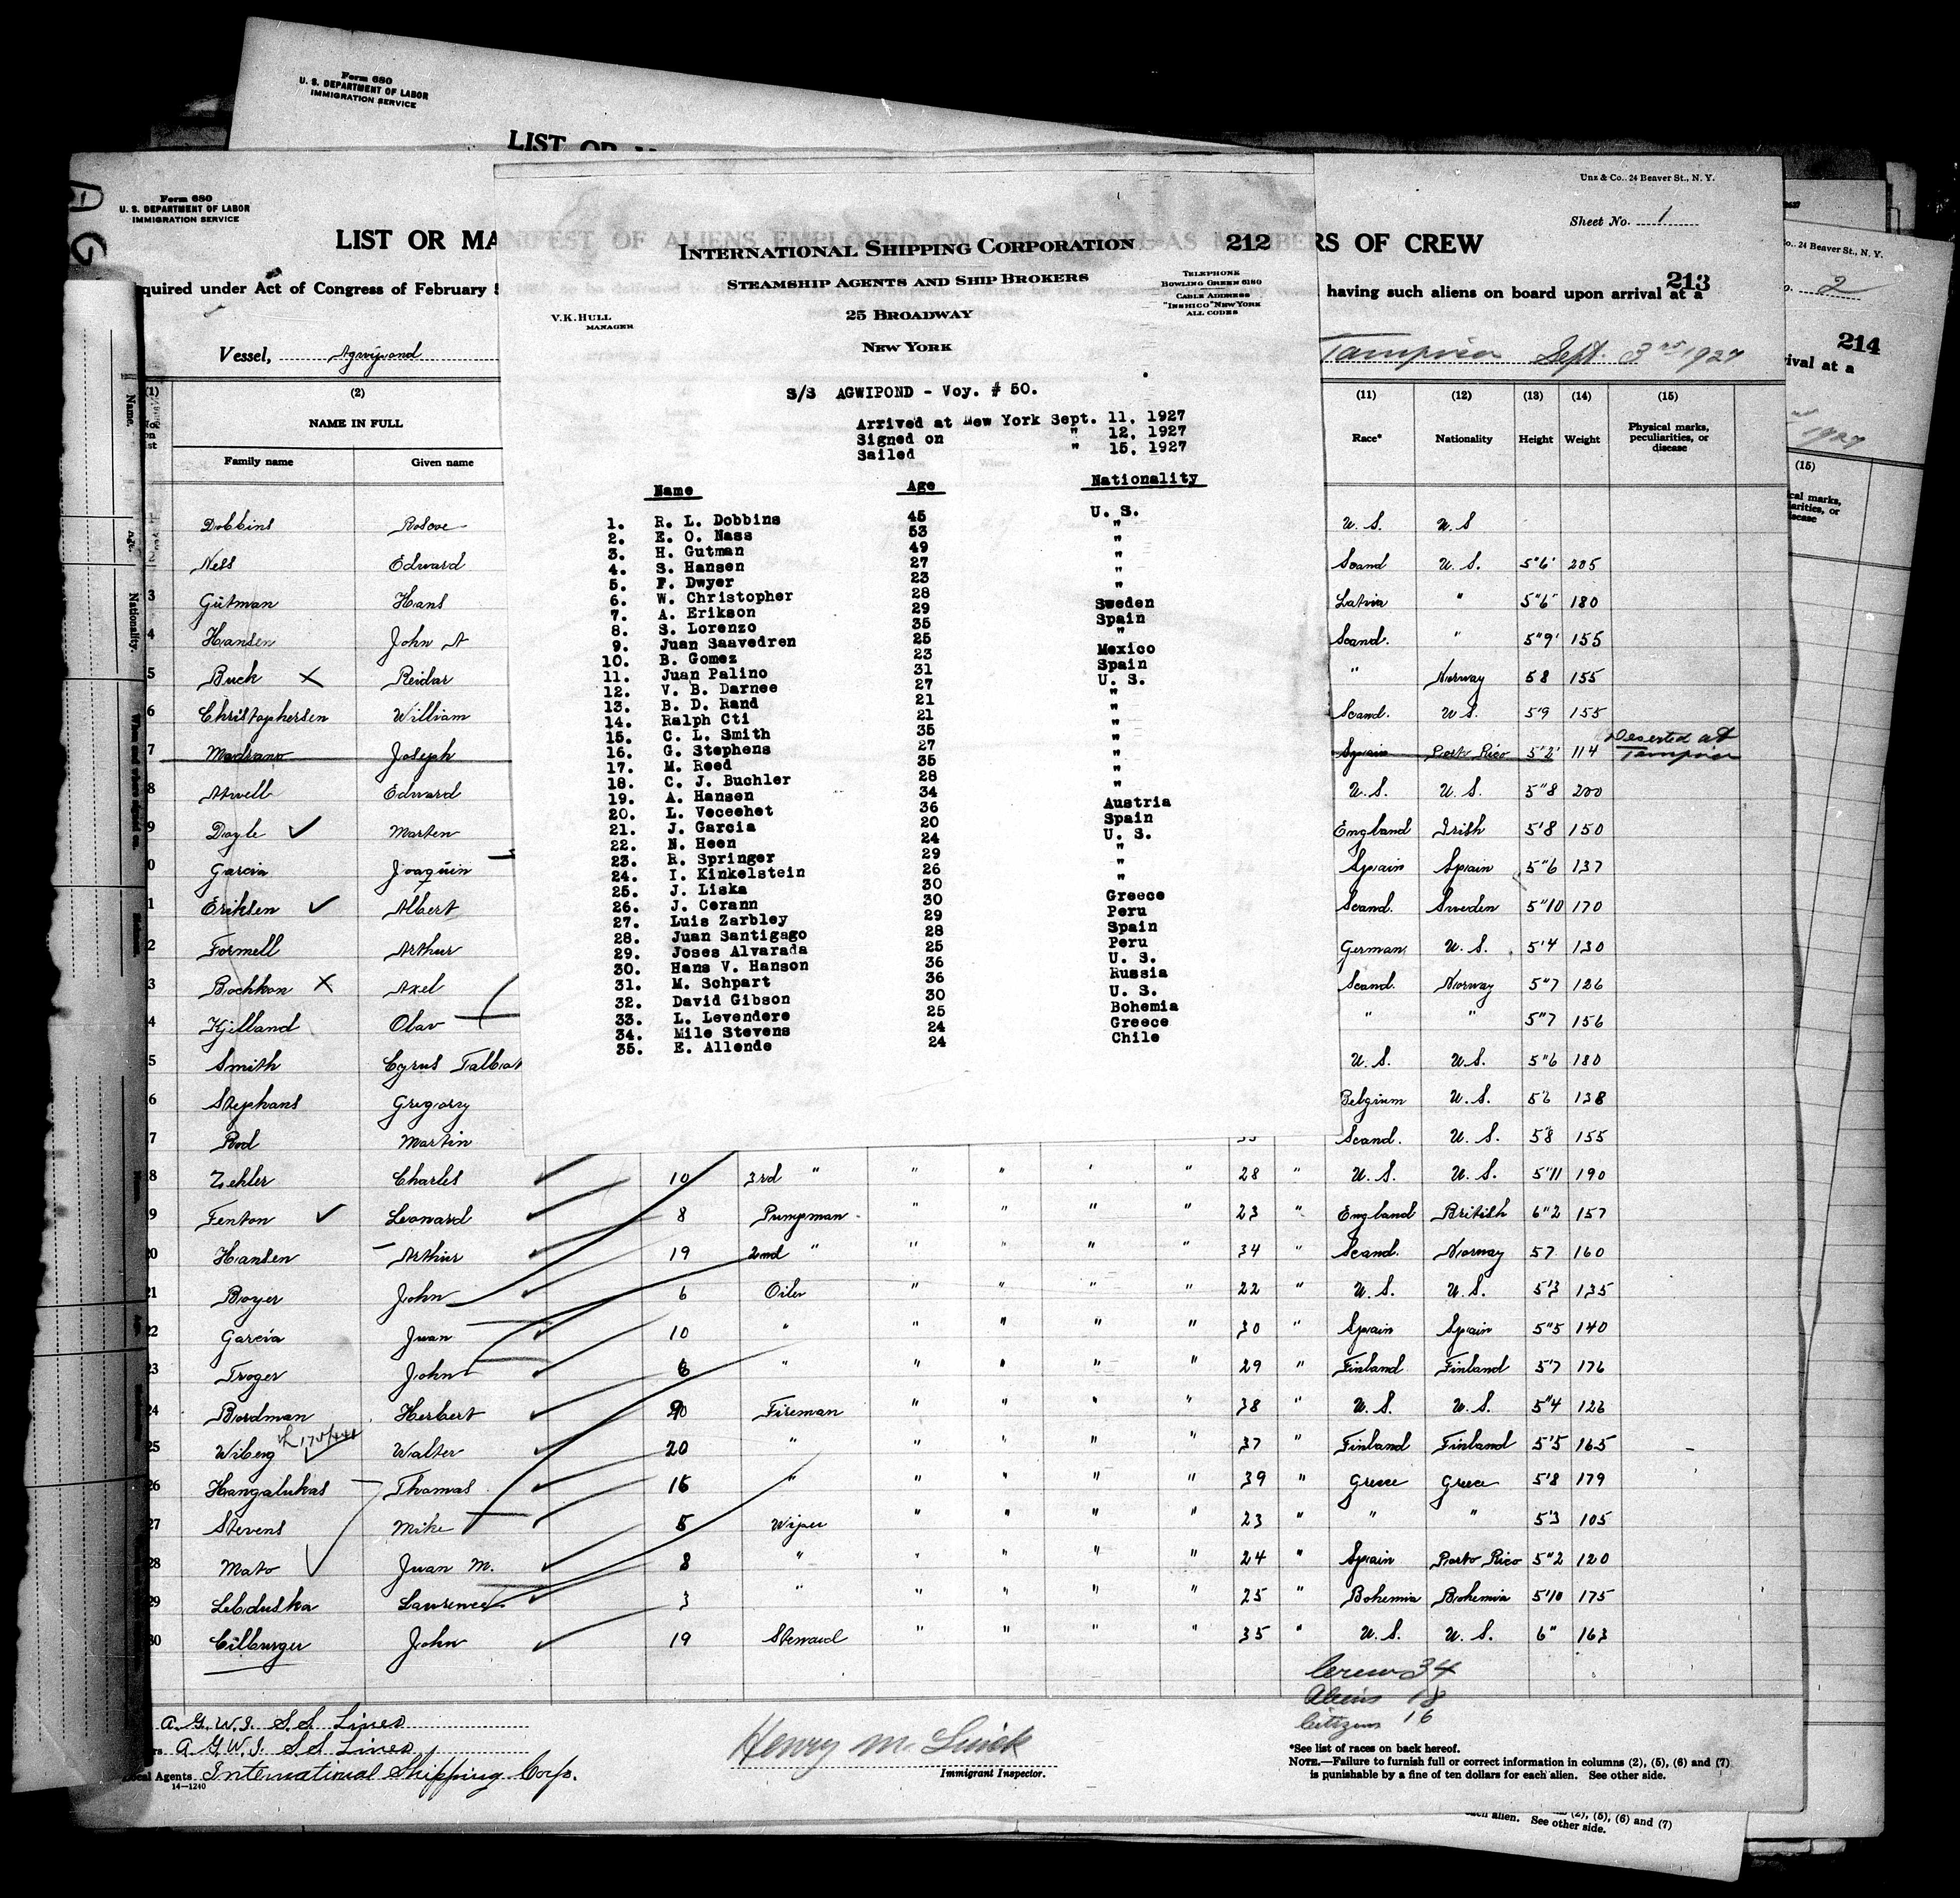 Form 680
U. S. DEPARTMENT OF LABOR
IMMIGRATION SERVICE
LIST OR
Form 680
U. S. DEPARTMENT OF LABOR
IMMIGRATION SERVICE
Unz & Co., 24 Beaver St., N. Y.
Sheet No. 1
LIST OR MANIFEST OF ALIENS EMPLOYED ON THE VESSEL AS MEMBERS OF CREW
213
quired under Act of Congress of February
having such aliens on board upon arrival at a
Vessel, Agwipond
Tampico Sept. 3rd 1927
INTERNATIONAL SHIPPING CORPORATION 212
STEAMSHIP AGENTS AND SHIP BROKERS
25 BROADWAY
NEW YORK
V. K. HULL
MANAGER
TELEPHONE
BOWLING GREEN 6180
CABLE ADDRESS
"INSHICO" NEW YORK
ALL CODES
S/S AGWIPOND - Voy. # 50.
Arrived at New York Sept. 11, 1927
Signed on " 12, 1927
Sailed " 15, 1927
Name Age Nationality
1. R. L. Dobbins 45 U. S.
2. E. O. Nass 53 "
3. H. Gutman 49 "
4. S. Hansen 27 "
5. F. Dwyer 23 "
6. W. Christopher 28 "
7. A. Erikson 29 Sweden
8. S. Lorenzo 35 Spain
9. Juan Saavedren 25 "
10. B. Gomez 23 Mexico
11. Juan Palino 31 Spain
12. V. B. Darnee 27 U. S.
13. B. D. Rand 21 "
14. Ralph Cti 21 "
15. C. L. Smith 35 "
16. G. Stephens 27 "
17. M. Reed 35 "
18. C. J. Buchler 28 "
19. A. Hansen 34 "
20. L. Veceehet 36 Austria
21. J. Garcia 20 Spain
22. N. Heen 24 U. S.
23. R. Springer 29 "
24. I. Kinkelstein 26 "
25. J. Liska 30 "
26. J. Cerann 30 Greece
27. Luis Zarbley 29 Peru
28. Juan Santigago 28 Spain
29. Joses Alvarada 25 Peru
30. Hans V. Hanson 36 U. S.
31. M. Schpart 36 Russia
32. David Gibson 30 U. S.
33. L. Levendere 25 Bohemia
34. Mile Stevens 24 Greece
35. E. Allende 24 Chile
(1) (2) (11) (12) (13) (14) (15)
NAME IN FULL Race* Nationality Height Weight Physical marks, peculiarities, or disease
Family name Given name
Dobbins Roscoe U. S. U. S
Ness Edward Scand U. S. 5"6' 205
3 Gutman Hans Latvia " 5"6' 180
4 Hansen John A Scand. " 5"9' 155
5 Buck X Reidar " Norway 5 8 155
6 Christophersen William Scand. U S. 5'9 155
7 Madrano Joseph Spain Porto Rico 5'2' 114 Deserted at Tampico
8 Atwell Edward U. S. U. S. 5"8 200
9 Doyle Marten England Irish 5'8 150
0 Garcia Joaquin Spain Spain 5"6 137
1 Eriksen Albert Scand. Sweden 5"10 170
2 Formell Arthur German U. S. 5'4 130
3 Bochkon X Axel Scand. Norway 5"7 126
4 Kjilland Olav " " 5"7 156
5 Smith Cyrus Talbot U. S. U. S. 5"6 180
6 Stephans Gregory Belgium U. S. 5'6 138
7 Rod Martin Scand. U. S. 5'8 155
8 Zehler Charles 10 3rd " " " " " 28 " U. S. U. S. 5"11 190
9 Fenton Leonard 8 Pumpman " " " " 23 " England British 6"2 157
20 Hansen Arthur 19 2nd " " " " " 34 " Scand. Norway 5 7 160
21 Boyer John 6 Oiler " " " " 22 " U. S. U. S. 5'3 135
22 Garcia Juan 10 " " " " " 30 " Spain Spain 5"5 140
23 Troger John 6 " " " " " 29 " Finland Finland 5'7 176
24 Bordman Herbert 20 Fireman " " " " 38 " U. S. U. S. 5"4 126
25 Wiberg Walter 20 " " " " " 37 " Finland Finland 5'5 165
26 Hangalukas Thomas 16 " " " " " 39 " Greece Greece 5'8 179
27 Stevens Mike 5 Wiper " " " " 23 " " " 5'3 105
28 Mato Juan M. 8 " " " " " 24 " Spain Porto Rico 5"2 120
29 Lebduska Lawrence 3 " " " " " 25 " Bohemia Bohemia 5'10 175
30 Cilburger John 19 Steward " " " " 35 " U. S. U. S. 6" 163
Crew 34
Aliens 18
Citizens 16
A. G. W. I. S. S. Lines
A G W I. S S Lines
Local Agents International Shipping Corp.
14—1240
Henry M. Luick
Immigrant Inspector.
*See list of races on back hereof.
NOTE.—Failure to furnish full or correct information in columns (2), (5), (6) and (7)
is punishable by a fine of ten dollars for each alien. See other side.
24 Beaver St., N. Y.
2
214
ival at a
1927
(15)
cal marks,
iarities, or
isease
(5), (6) and (7)
ach alien. See other side.
Name.
Age.
Nationality.